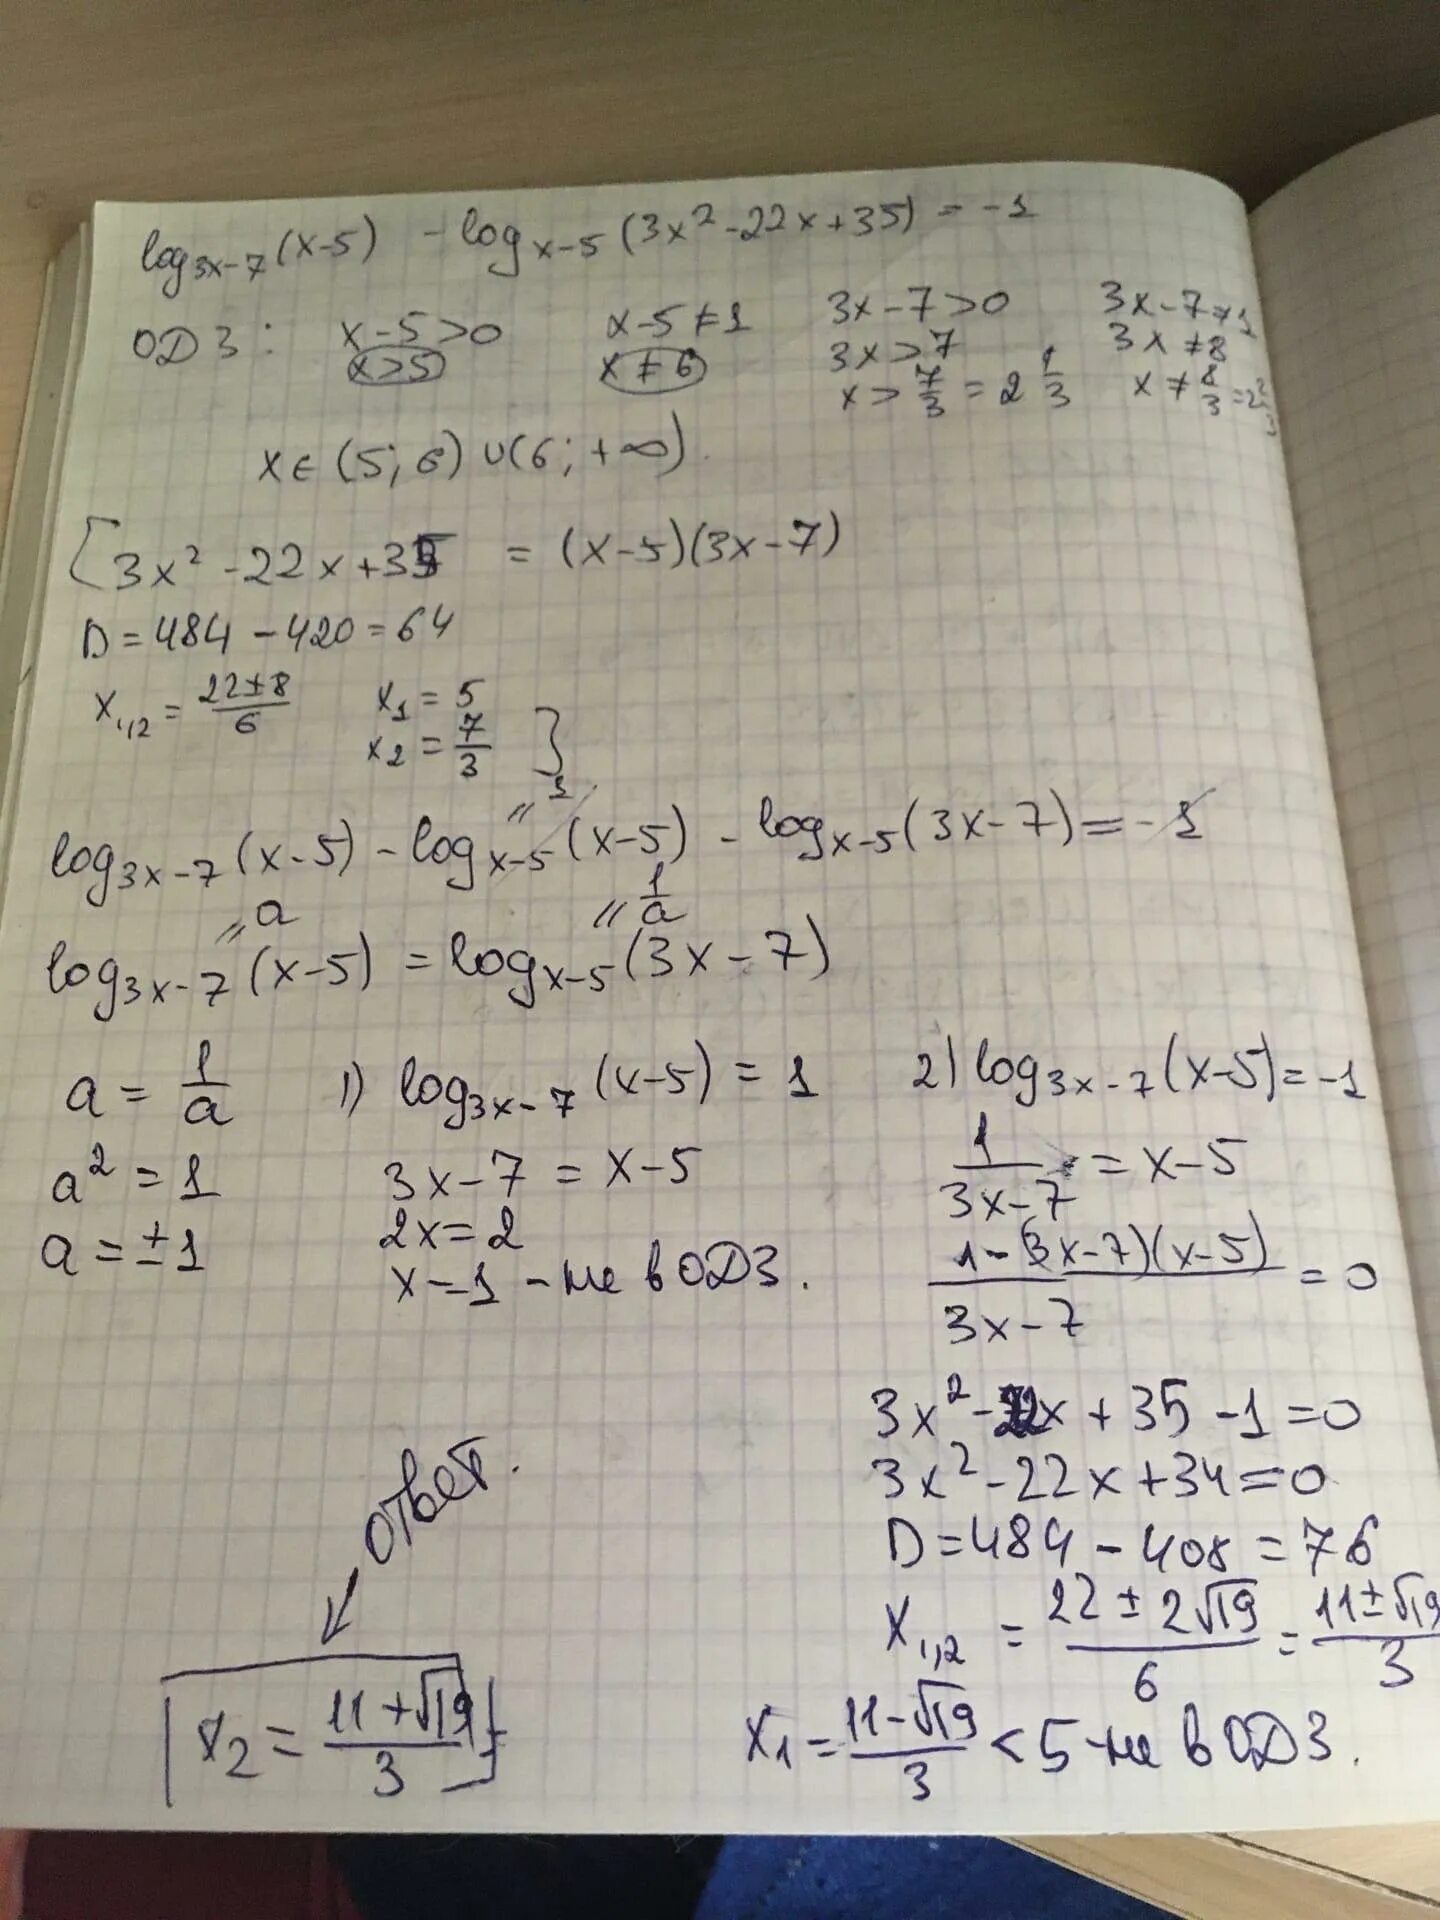 log₃ₓ₋₇(x-5) - logₓ₋₅(3x²-22x+35) = -1
ОДЗ: x-5>0 x-5≠1 3x-7>0 3x-7≠1
x>5 x≠6 3x>7 3x≠8
x>7/3=2 1/3 x≠8/3=2 2/3
x∈(5;6)∪(6;+∞).
[3x²-22x+35 = (x-5)(3x-7)
D=484-420=64
x₁,₂=(22±8)/6 x₁=5
x₂=7/3 }
log₃ₓ₋₇(x-5) - logₓ₋₅(x-5) - logₓ₋₅(3x-7) = -1
"1
"a "1/a
log₃ₓ₋₇(x-5) = logₓ₋₅(3x-7)
a=1/a
a²=1
a=±1
1) log₃ₓ₋₇(x-5) = 1
3x-7=x-5
2x=2
x=1 - не в ОДЗ.
2) log₃ₓ₋₇(x-5)=-1
1/(3x-7) = x-5
(1-(3x-7)(x-5))/(3x-7) = 0
3x²-22x+35-1=0
3x²-22x+34=0
D=484-408=76
x₁,₂ = (22±2√19)/6 = (11±√19)/3
x₁=(11-√19)/3 <5 - не в ОДЗ.
ответ.
x₂=(11+√19)/3